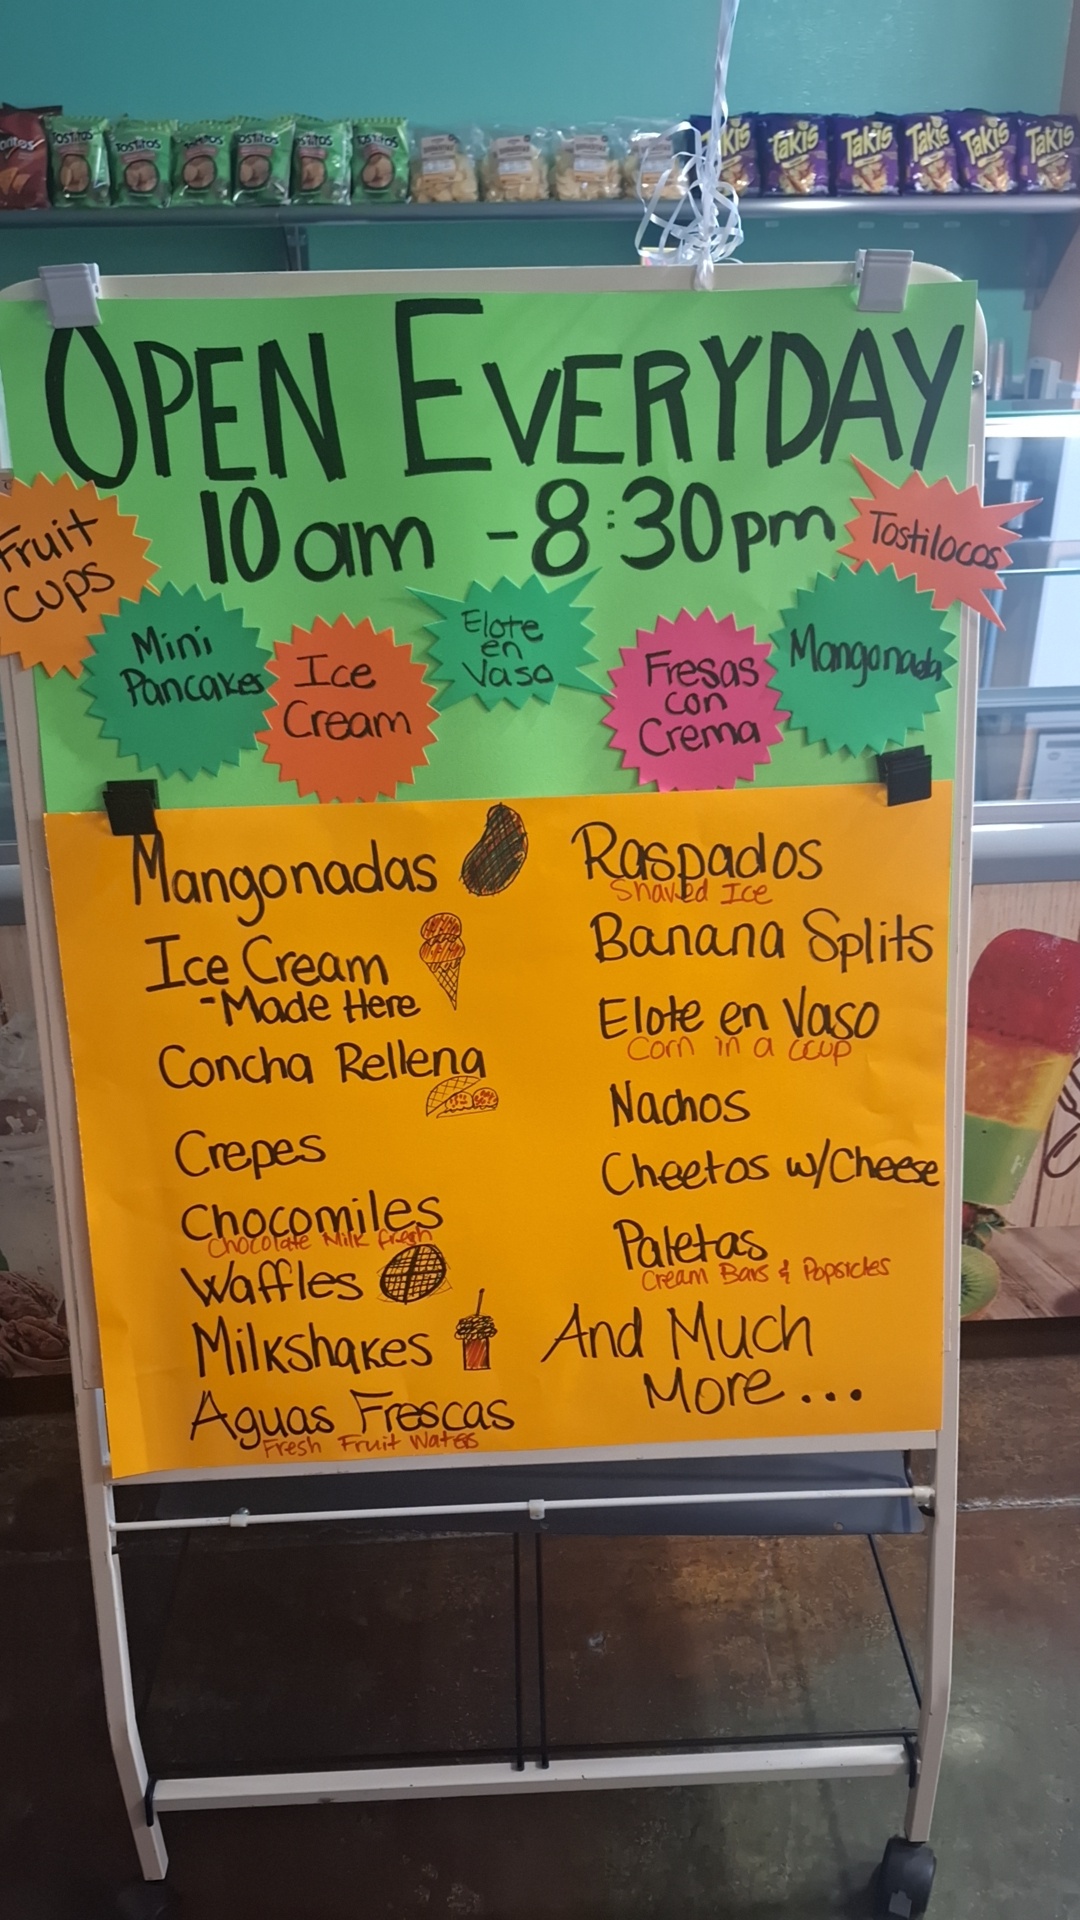 TOSTITOS
TOSTITOS
TOSTITOS
TOSTITOS
TOSTITOS
TOSTITOS
Takis
Takis
Takis
Takis
Takis
Takis
OPEN EVERYDAY
10am - 8:30pm
Fruit
Cups
Mini
Pancakes
Ice
Cream
Elote
en
Vaso
Fresas
con
Crema
Mangonada
Tostilocos
Mangonadas
Ice Cream
-Made Here
Concha Rellena
Crepes
Chocomiles
Chocolate Milk fresh
Waffles
Milkshakes
Aguas Frescas
Fresh Fruit Waters
Raspados
Shaved Ice
Banana Splits
Elote en Vaso
Corn in a ccup
Nachos
Cheetos w/Cheese
Paletas
Cream Bars & Popsicles
And Much
More...